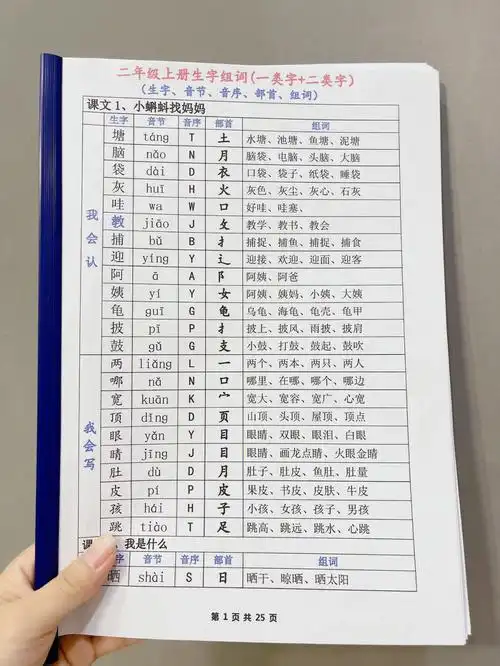 二年级上册生字组词(一类字+二类字)
(生字、音节、音序、部首、组词)
课文 1、小蝌蚪找妈妈
生字 音节 音序 部首 组词
我会认
塘 táng T 土 水塘、池塘、鱼塘、泥塘
脑 nǎo N 月 脑袋、电脑、头脑、大脑
袋 dài D 衣 口袋、袋子、纸袋、睡袋
灰 huī H 火 灰色、灰尘、灰心、石灰
哇 wa W 口 好哇、哇塞、
教 jiāo J 攵 教学、教书、教会
捕 bǔ B 扌 捕捉、捕鱼、捕捉、捕食
迎 yíng Y 辶 迎接、欢迎、迎面、迎客
阿 ā A 阝 阿姨、阿爸
姨 yí Y 女 阿姨、姨妈、小姨、大姨
龟 guī G 龟 乌龟、海龟、龟壳、龟甲
披 pī P 扌 披上、披风、雨披、披肩
鼓 gǔ G 支 小鼓、打鼓、鼓起、鼓吹
我会写
两 liǎng L 一 两个、两本、两只、两人
哪 nǎ N 口 哪里、在哪、哪个、哪边
宽 kuān K 宀 宽大、宽容、宽广、心宽
顶 dǐng D 页 山顶、头顶、屋顶、顶点
眼 yǎn Y 目 眼睛、双眼、眼泪、白眼
睛 jīng J 目 眼睛、画龙点睛、火眼金睛
肚 dù D 月 肚子、肚皮、鱼肚、肚量
皮 pí P 皮 果皮、书皮、皮肤、牛皮
孩 hái H 子 小孩、女孩、孩子、男孩
跳 tiào T 足 跳高、跳远、跳水、心跳
课 、我是什么
生字 音节 音序 部首 组词
晒 shài S 日 晒干、晾晒、晒太阳
第 1 页 共 25 页